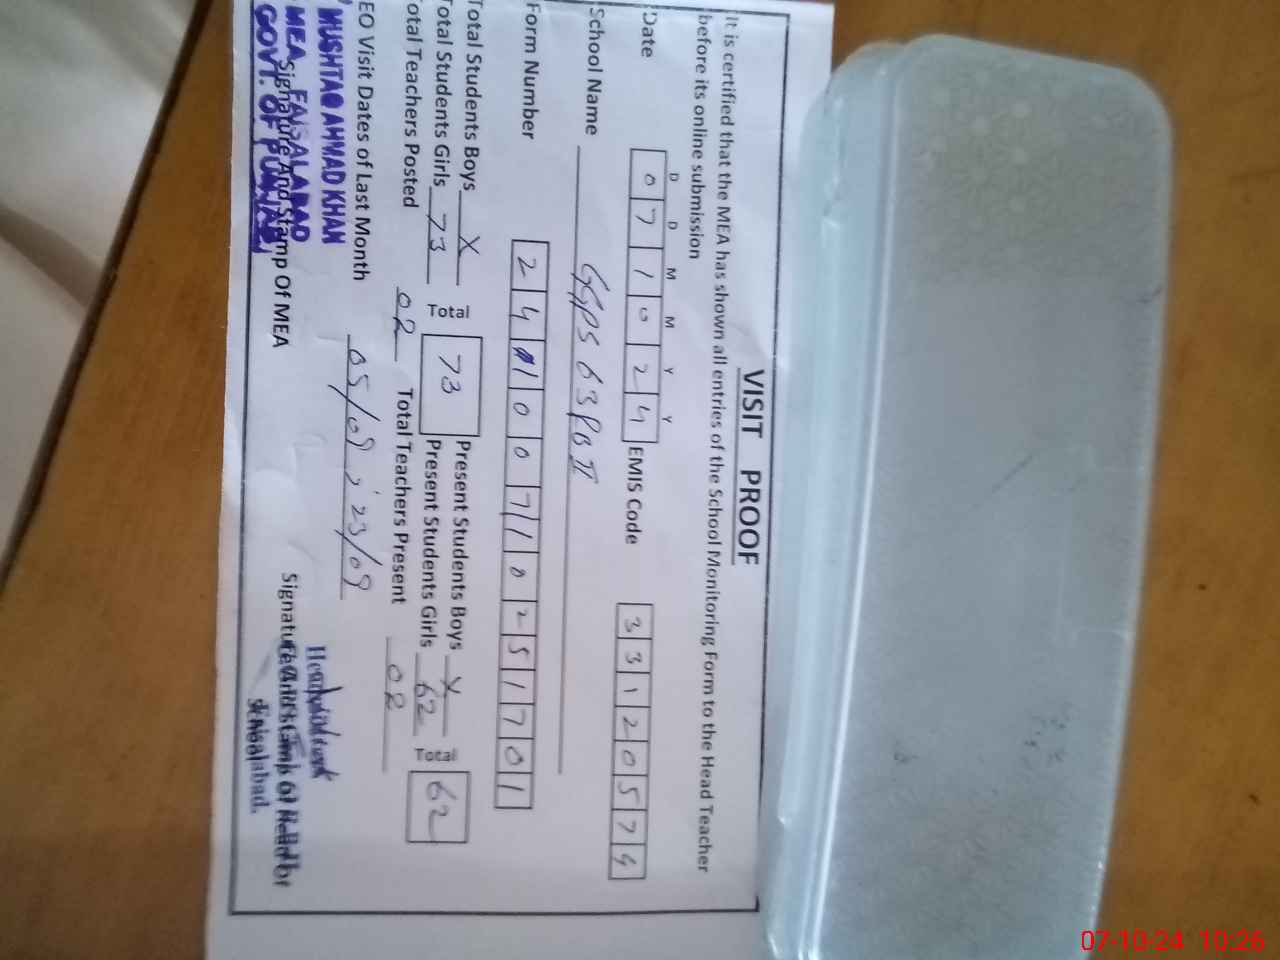 VISIT PROOF
It is certified that the MEA has shown all entries of the School Monitoring Form to the Head Teacher
before its online submission
D D M M Y Y
Date 0 7 1 0 2 4 EMIS Code 3 3 1 2 0 5 7 4
School Name GGPS 63 RB II
Form Number 2 4 1 0 0 7 1 0 2 5 1 7 0 1
Total Students Boys X Present Students Boys X
Total Students Girls 73 Total 73 Present Students Girls 62 Total 62
Total Teachers Posted 02 Total Teachers Present 02
EO Visit Dates of Last Month 05/09, 23/09
MUSHTAQ AHMAD KHAN
MEA FAISALABAD
GOVT. OF PUNJAB
Signature And Stamp Of MEA
Signature And Stamp Of Head
School
Faisalabad.
07-10-24 10:26